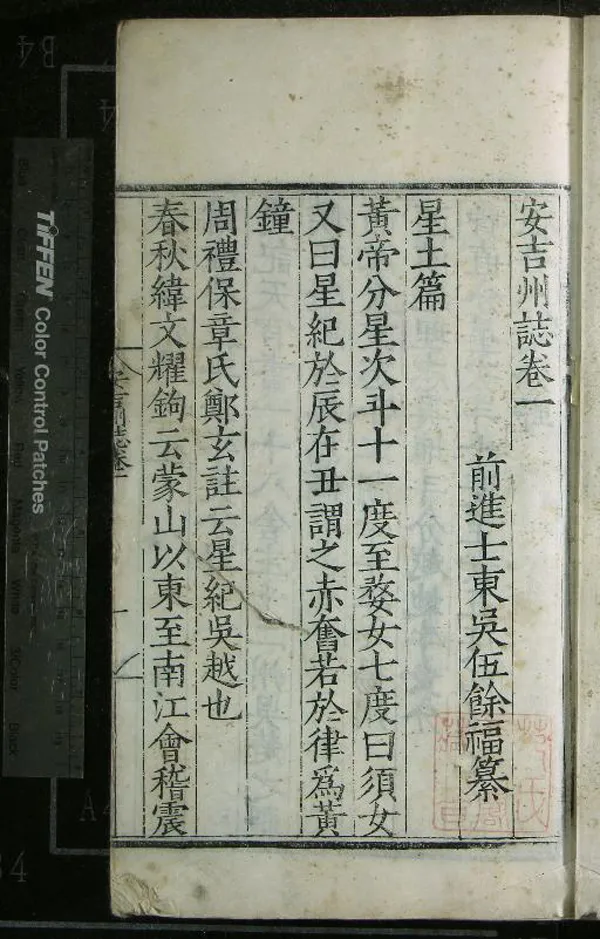 安吉州誌卷一
前進士東吳伍餘福纂
星土篇
黃帝分星次斗十一度至婺女七度曰須女
又曰星紀於辰在丑謂之赤奮若於律爲黃
鐘
周禮保章氏鄭玄註云星紀吳越也
春秋緯文耀鉤云蒙山以東至南江會稽震
安吉州誌卷一
TIFFEN Color Control Patches